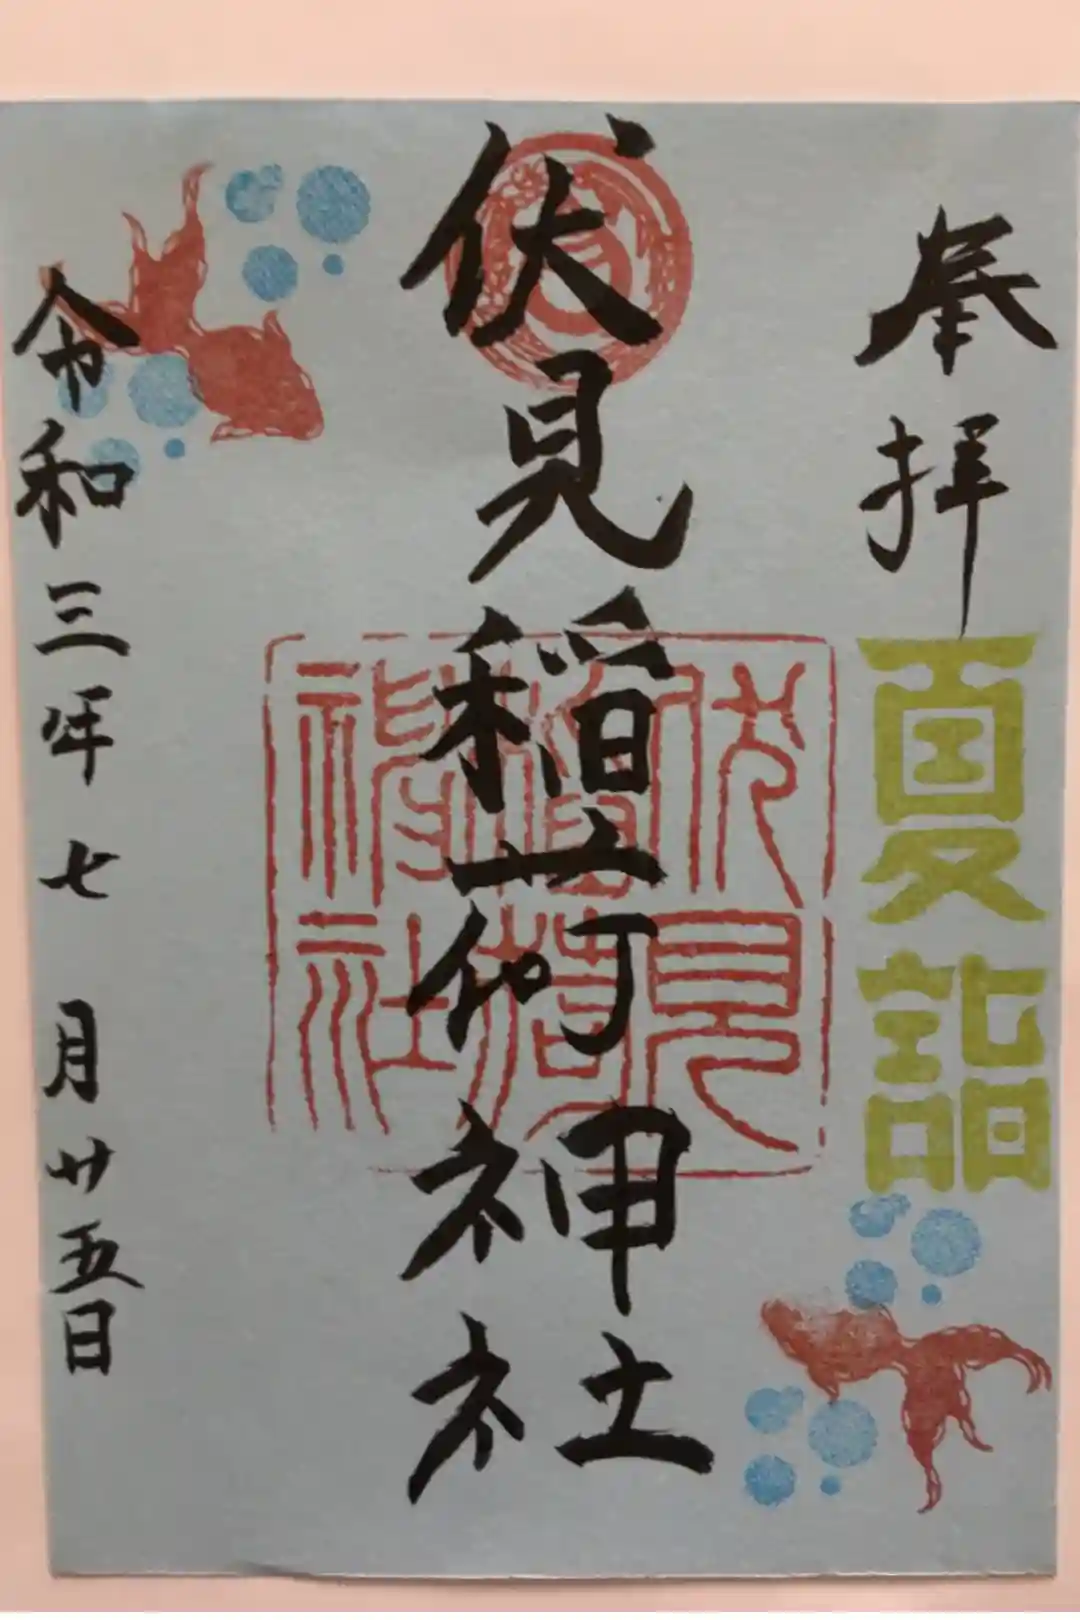 奉拝
夏詣
伏見稲荷神社
伏見
稲荷
神社
令和三年七月廿五日